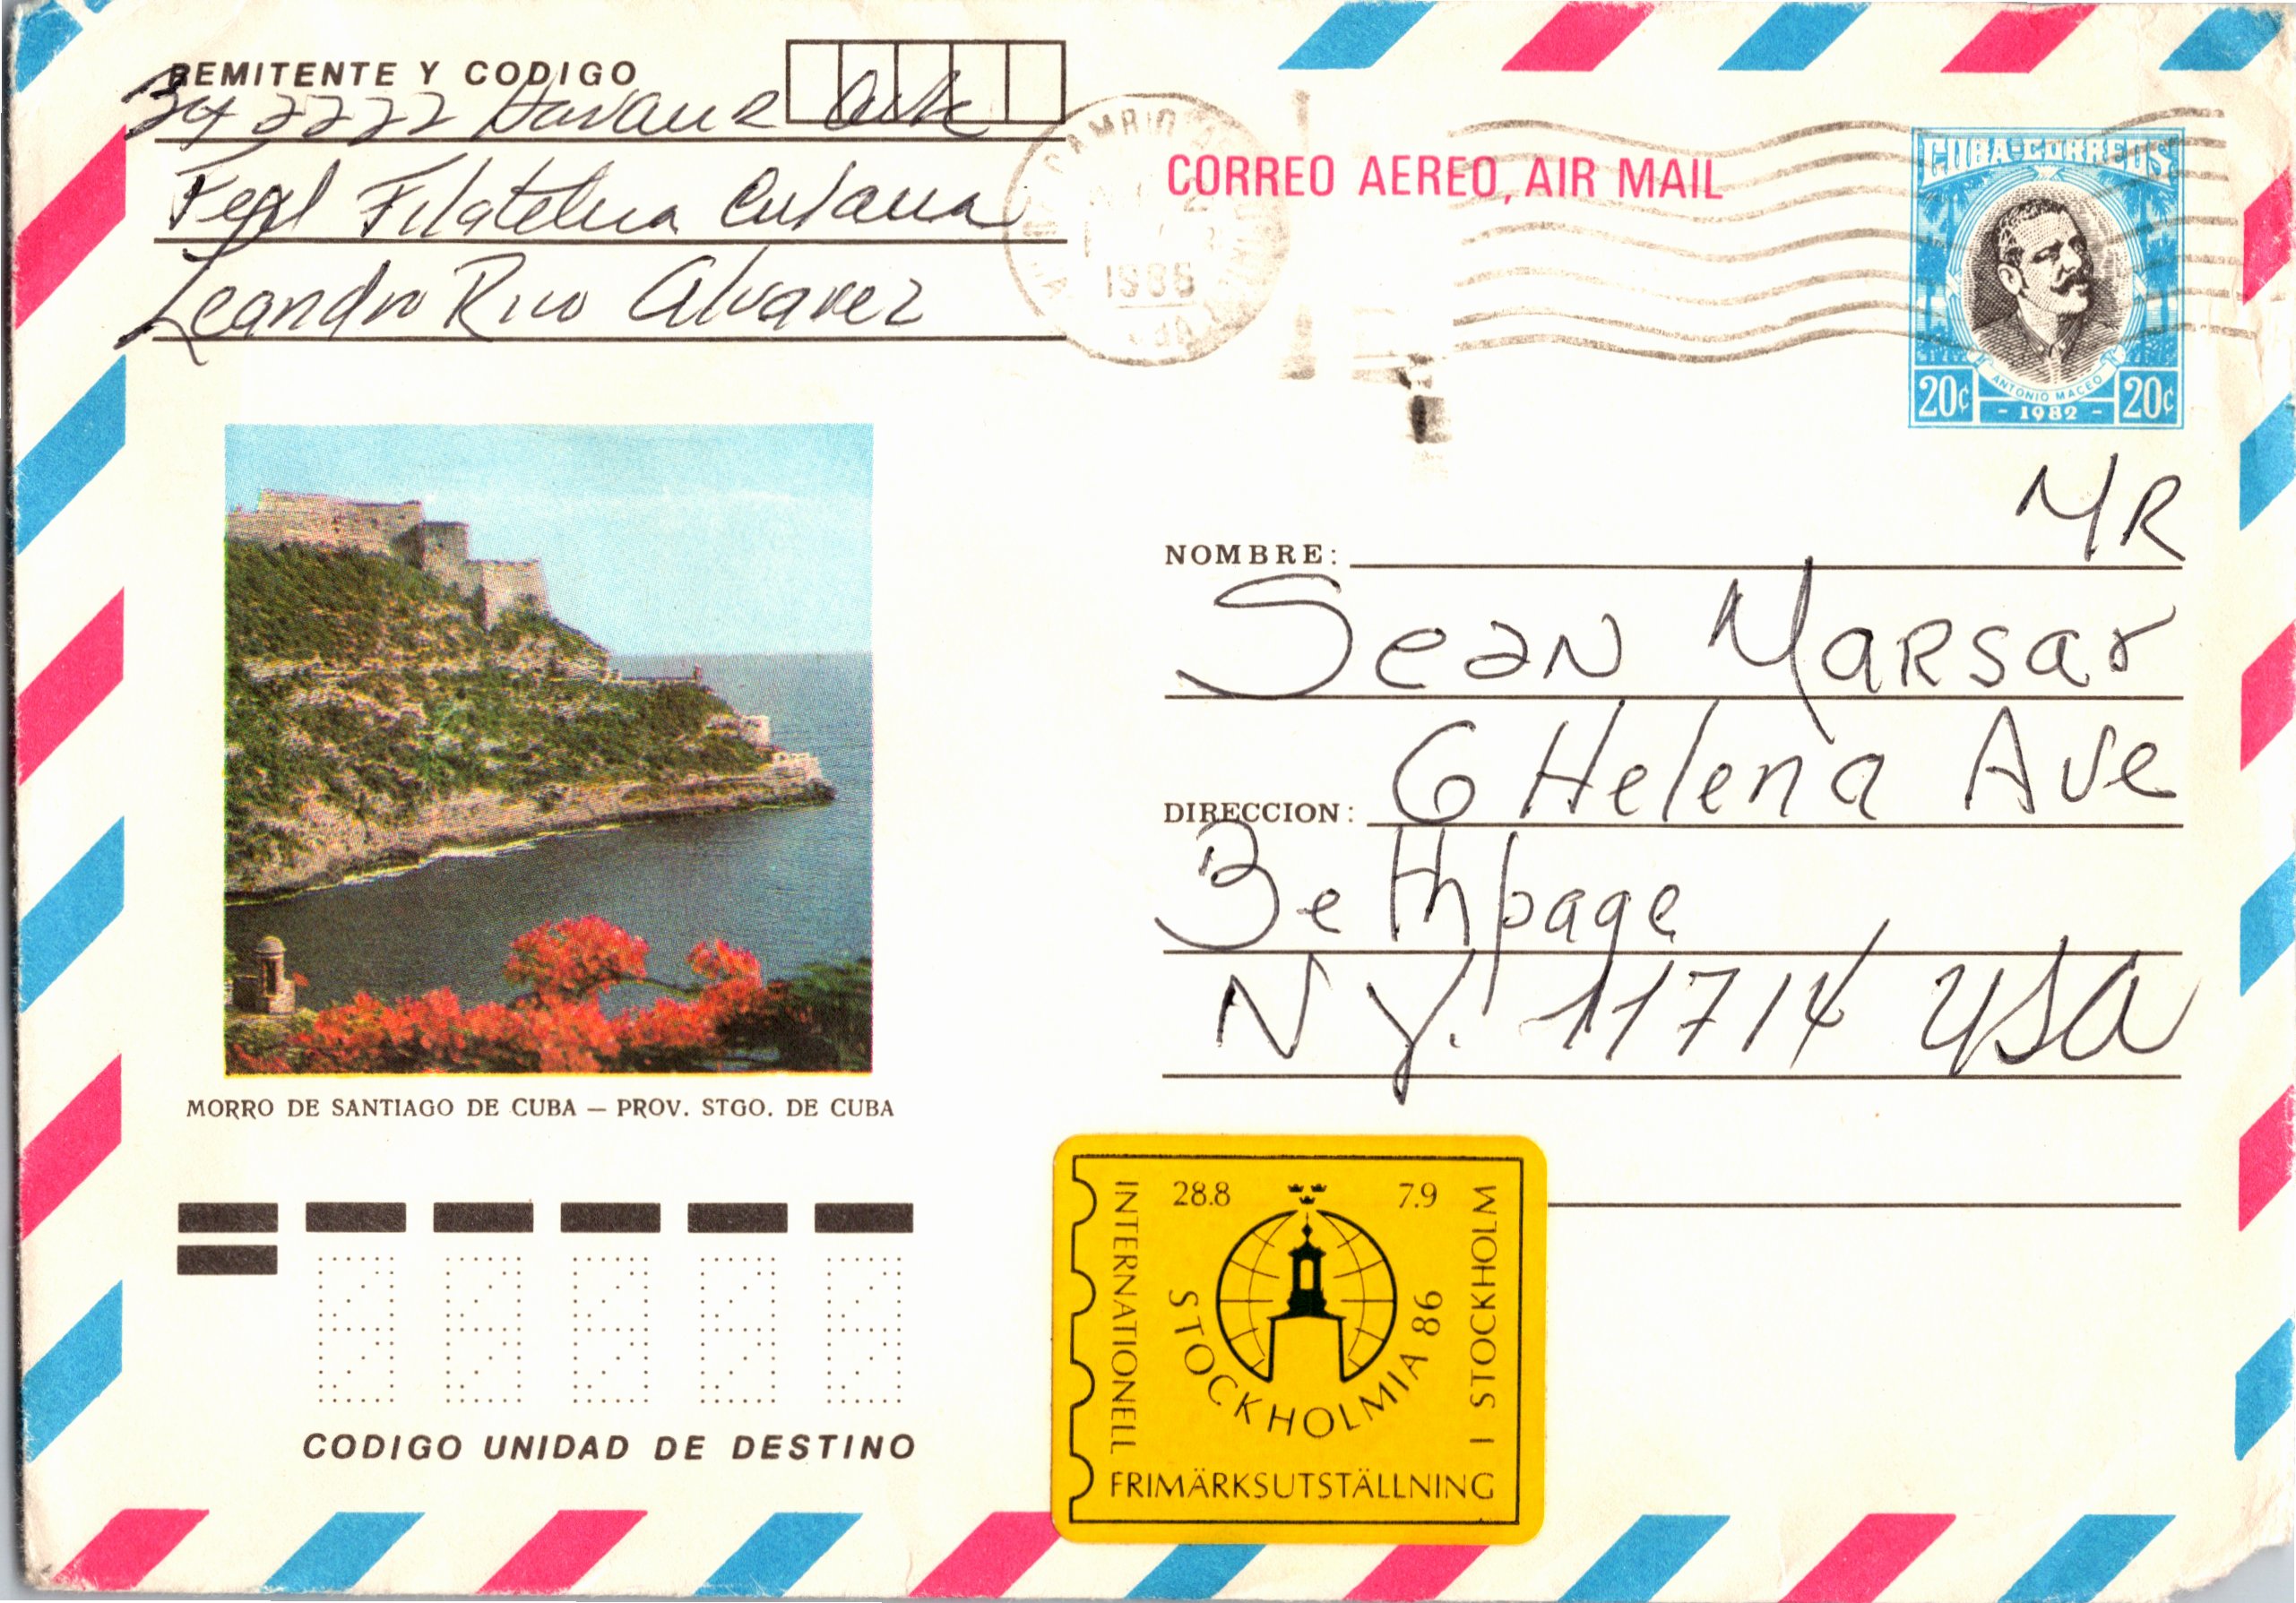 REMITENTE Y CODIGO
2222 Havana Cuba
Filatelica Cubana
Leandro Rico Alvarez
CAMBIO
1986
CORREO AEREO, AIR MAIL
CUBA-CORREOS
ANTONIO MACEO
20¢ - 1982 - 20¢
MR
NOMBRE:
Sean Marsar
DIRECCION: 6 Helena Ave
Bethpage
NY. 11714 USA
MORRO DE SANTIAGO DE CUBA — PROV. STGO. DE CUBA
CODIGO UNIDAD DE DESTINO
28.8 7.9
INTERNATIONELL
STOCKHOLMIA 86
I STOCKHOLM
FRIMÄRKSUTSTÄLLNING